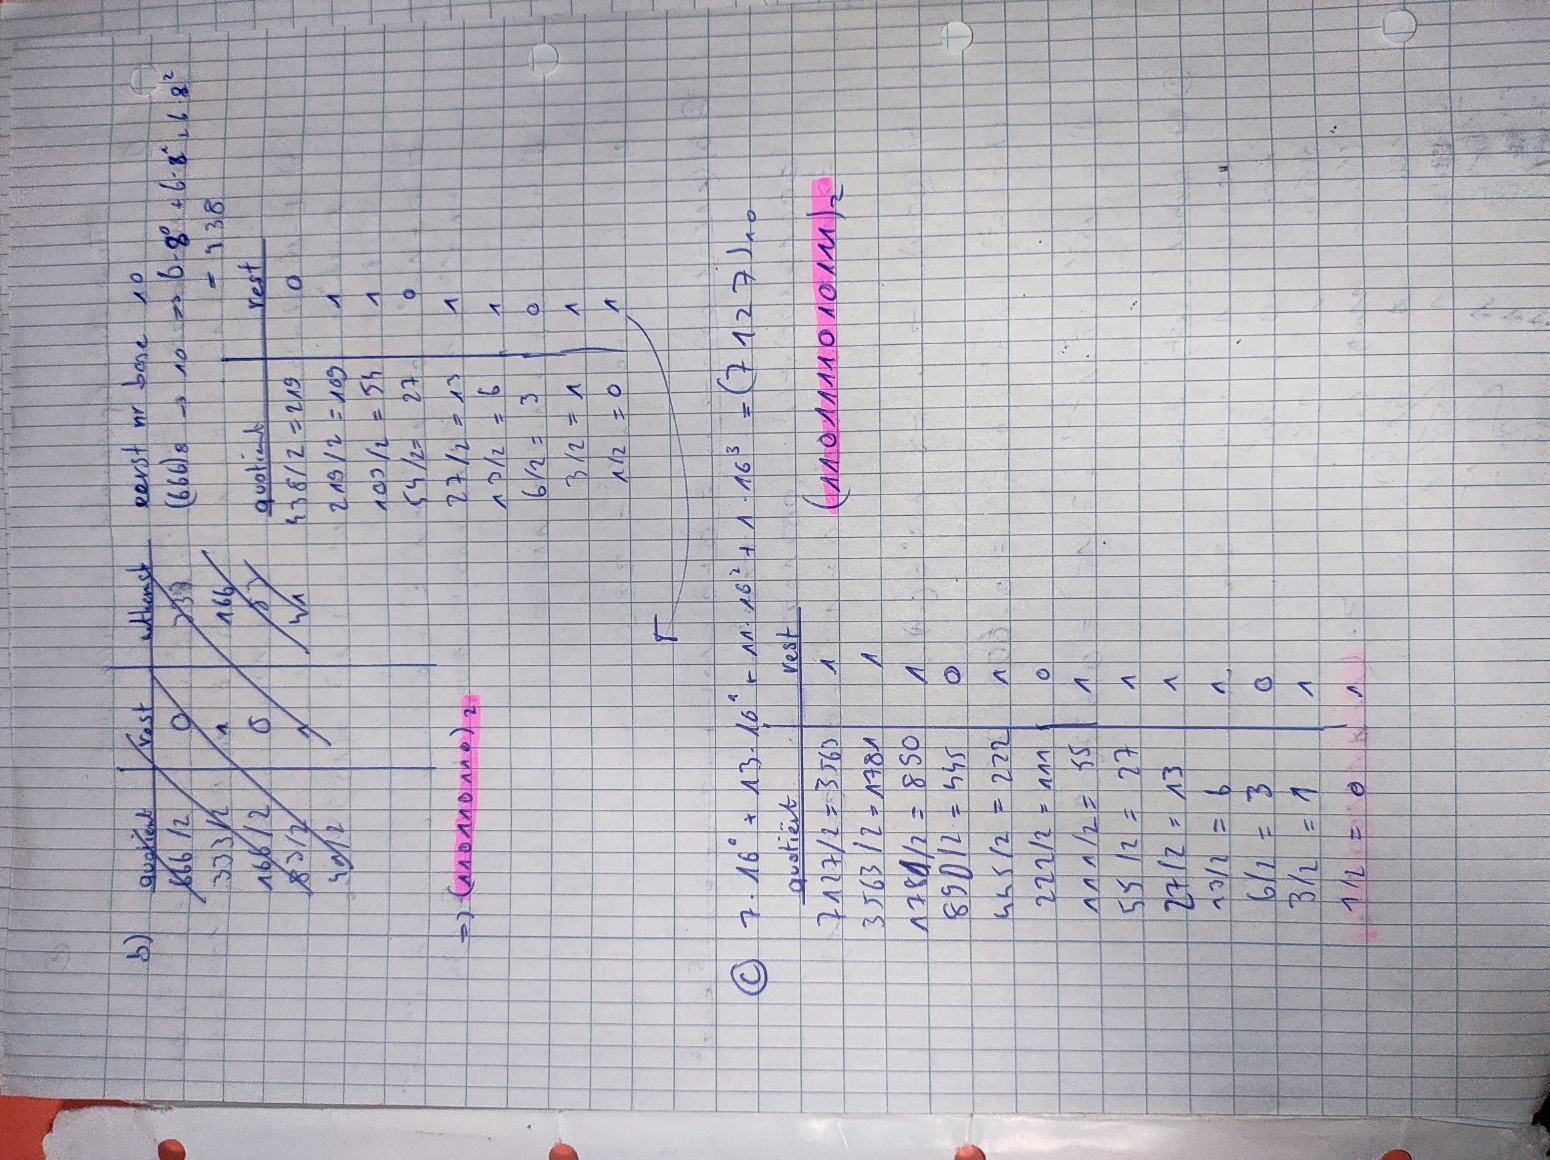 b)
quotiënt rest
666/2 0
333/2 1 166
166/2 0
83/2 1 41
=> (110110110)₂
eerst nr base 10
(666)₈ → 10 => 6·8⁰ + 6·8¹ + 6·8²
= 438
quotient rest
438/2 = 219 0
219/2 = 109 1
109/2 = 54 1
54/2 = 27 0
27/2 = 13 1
13/2 = 6 1
6/2 = 3 0
3/2 = 1 1
1/2 = 0 1
C 7·16⁰ + 13·16¹ + 11·16² + 1·16³ = (7127)₁₀
quotiënt rest
7127/2 = 3563 1
(1101111010111)₂
3563/2 = 1781 1
1781/2 = 890 1
890/2 = 445 0
445/2 = 222 1
222/2 = 111 0
111/2 = 55 1
55/2 = 27 1
27/2 = 13 1
13/2 = 6 1
6/2 = 3 0
3/2 = 1 1
1/2 = 0 1